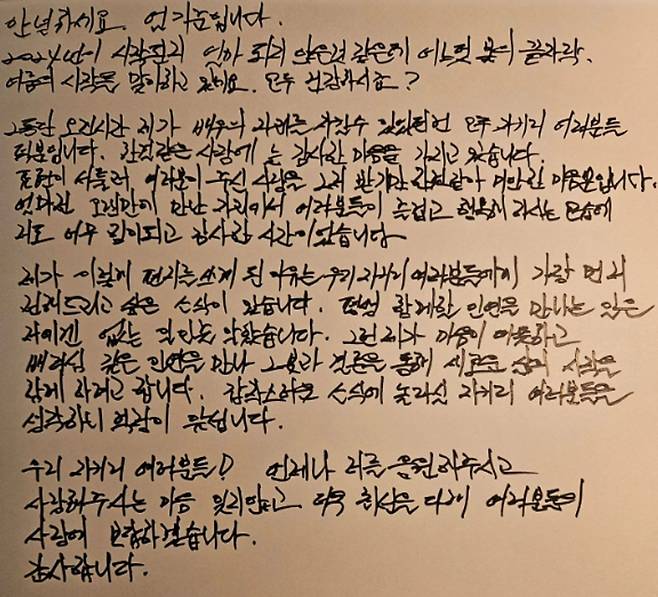 안녕하세요. 엄기준입니다.
2024년이 시작된지 얼마 되지 않은것 같은데 어느덧 봄의 끝자락.
여름의 시작을 맞이하고 있네요. 모두 건강하시죠?
그동안 오랜시간 제가 배우의 자리를 지킬수 있었던건 모두 자기리 여러분들
덕분입니다. 한결같은 사랑에 늘 감사한 마음을 가지고 있습니다.
표현이 서툴러 여러분이 주신 사랑을 그저 받기만 한것같아 미안한 마음뿐입니다.
얼마전 오랜만에 만난 자리에서 여러분들이 즐겁고 행복해 하시는 모습에
저도 너무 힐이되고 감사한 시간이었습니다
제가 이렇게 편지를 쓰게 된 이유는 우리 자기리 여러분들에게 가장 먼저
전해드리고 싶은 소식이 있습니다. 평생 함께할 인연을 만나는 일은
저에겐 없는 일인줄 알았습니다. 그런 제가 마음이 따뜻하고
배려심 깊은 인연을 만나 그분과 결혼을 통해 새로운 삶의 시작을
함께 하려고 합니다. 갑작스러운 소식에 놀라실 자기리 여러분들을
생각하니 걱정이 앞섭니다.
우리 자기리 여러분들! 언제나 저를 응원해주시고
사랑해주시는 마음 잊지않고 더욱 최선을 다해 여러분들의
사랑에 보답하겠습니다.
감사합니다.